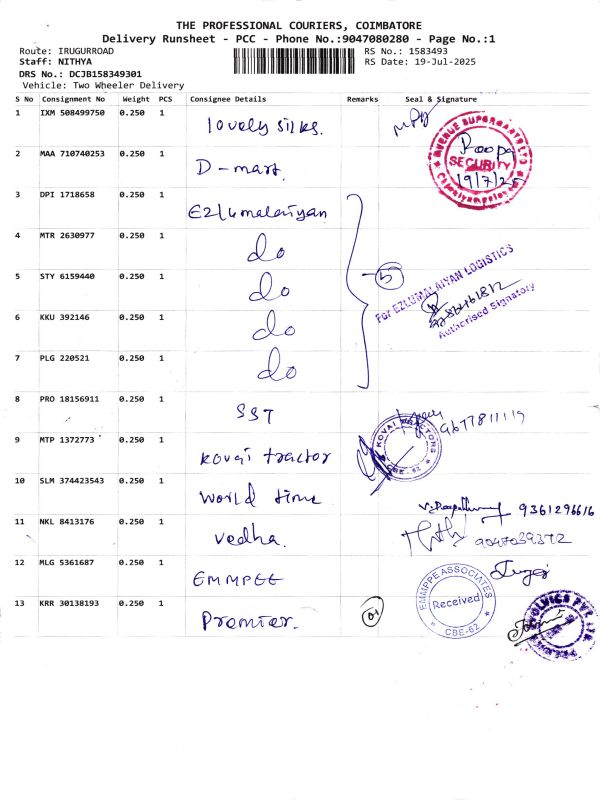 THE PROFESSIONAL COURIERS, COIMBATORE
Delivery Runsheet - PCC - Phone No.:9047080280 - Page No.:1
Route: IRUGURROAD RS No.: 1583493
Staff: NITHYA RS Date: 19-Jul-2025
DRS No.: DCJB158349301
Vehicle: Two Wheeler Delivery
S No Consignment No Weight PCS Consignee Details Remarks Seal & Signature
1 IXM 508499750 0.250 1 lovely silks.
AVENUE SUPERMARTS LTD
Roopa
SECURITY
19/7/25
2 MAA 710740253 0.250 1 D-mart.
3 DPI 1718658 0.250 1 Ezlumalaiyan
4 MTR 2630977 0.250 1 do
5 STY 6159440 0.250 1 do 5
For EZLUMALAIYAN LOGISTICS
Authorised Signatory
6 KKU 392146 0.250 1 do
7 PLG 220521 0.250 1 do
8 PRO 18156911 0.250 1 SST
9677811119
9 MTP 1372773 0.250 1 kovai tractor
KOVAI TRACTORS
CBE-62
10 SLM 374423543 0.250 1 world time
9361296616
11 NKL 8413176 0.250 1 vedha.
9047039372
12 MLG 5361687 0.250 1 EMMPEE
EMMPPE ASSOCIATES
Received
CBE-62
13 KRR 30138193 0.250 1 Premier. 01